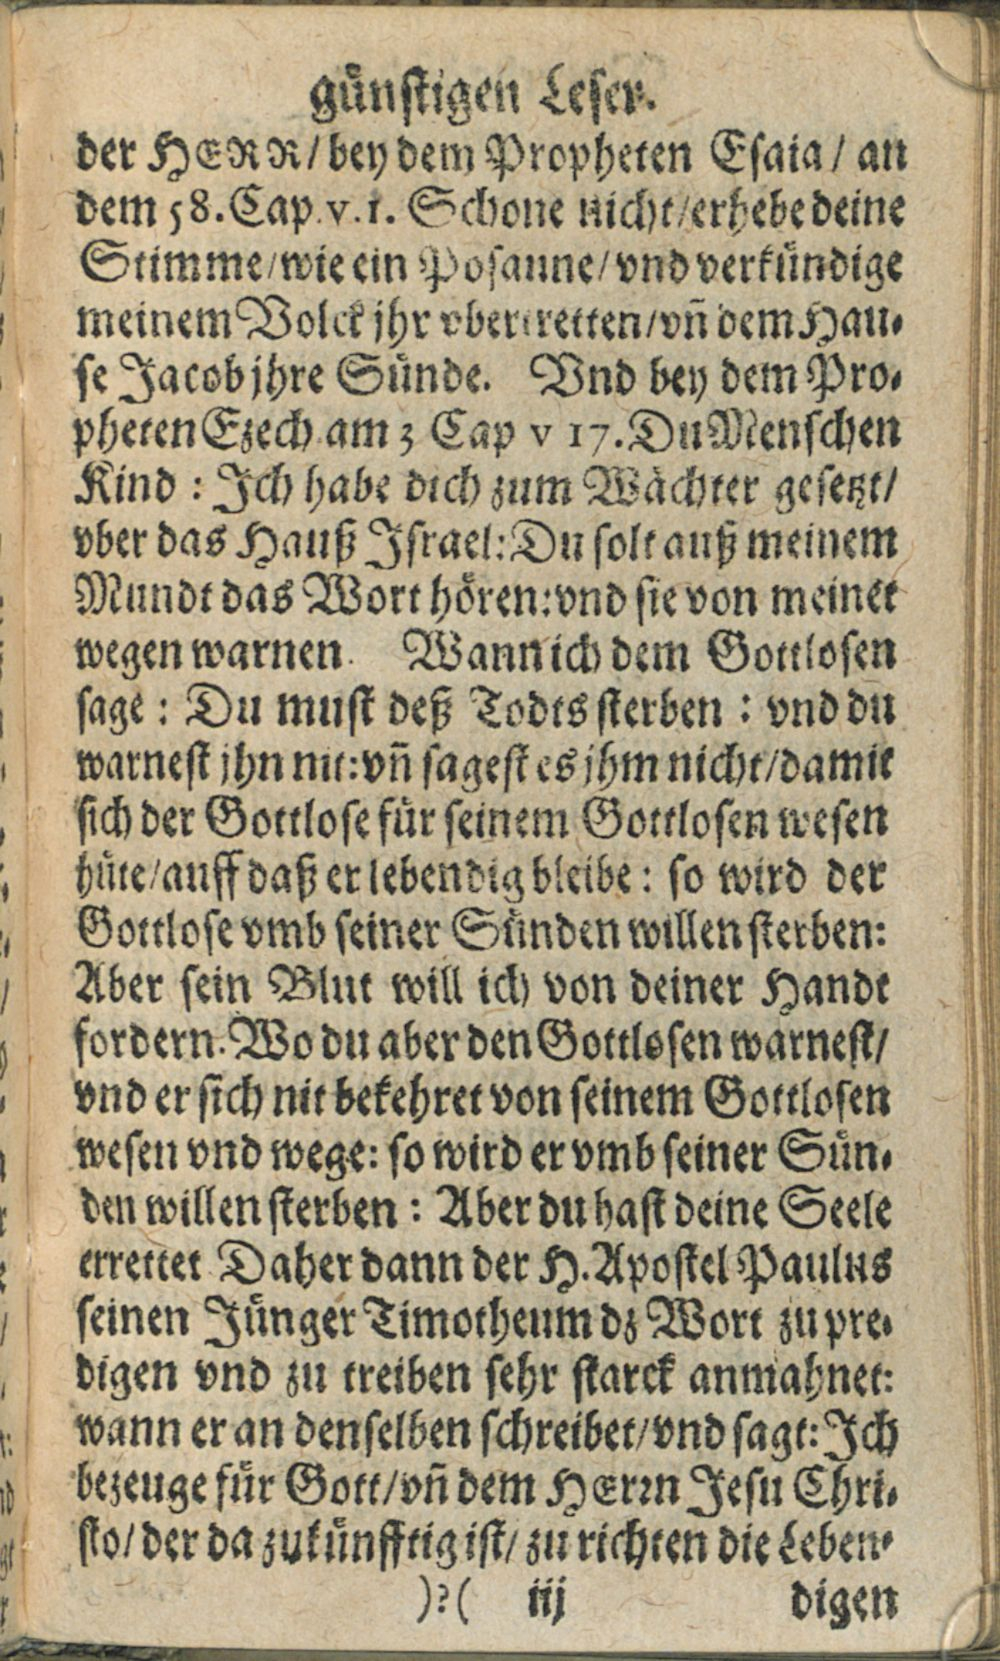 günstigen Leser.
der HERR/ bey dem Propheten Esaia/ an
dem 58. Cap. v. 1. Schone nicht/ erhebe deine
Stimme/ wie ein Posaune/ vnd verkündige
meinem Volck jhr vbertretten/ vñ dem Hau-
se Jacob jhre Sünde. Vnd bey dem Pro-
pheten Ezech. am 3 Cap v 17. Du Menschen
Kind : Ich habe dich zum Wächter gesetzt/
vber das Hauß Israel: Du solt auß meinem
Mundt das Wort hören: vnd sie von meinet
wegen warnen. Wann ich dem Gottlosen
sage : Du must deß Todts sterben : vnd du
warnest jhn nit: vñ sagest es jhm nicht/ damit
sich der Gottlose für seinem Gottlosen wesen
hüte/ auff daß er lebendig bleibe : so wird der
Gottlose vmb seiner Sünden willen sterben:
Aber sein Blut will ich von deiner Handt
fordern. Wo du aber den Gottlosen warnest/
vnd er sich nit bekehret von seinem Gottlosen
wesen vnd wege: so wird er vmb seiner Sün-
den willen sterben : Aber du hast deine Seele
errettet Daher dann der H. Apostel Paulus
seinen Jünger Timotheum dz Wort zu pre-
digen vnd zu treiben sehr starck anmahnet:
wann er an denselben schreibet/ vnd sagt: Ich
bezeuge für Gott/ vñ dem HErrn Jesu Chri-
sto/ der da zukünfftig ist/ zu richten die Leben-
)?( iij digen